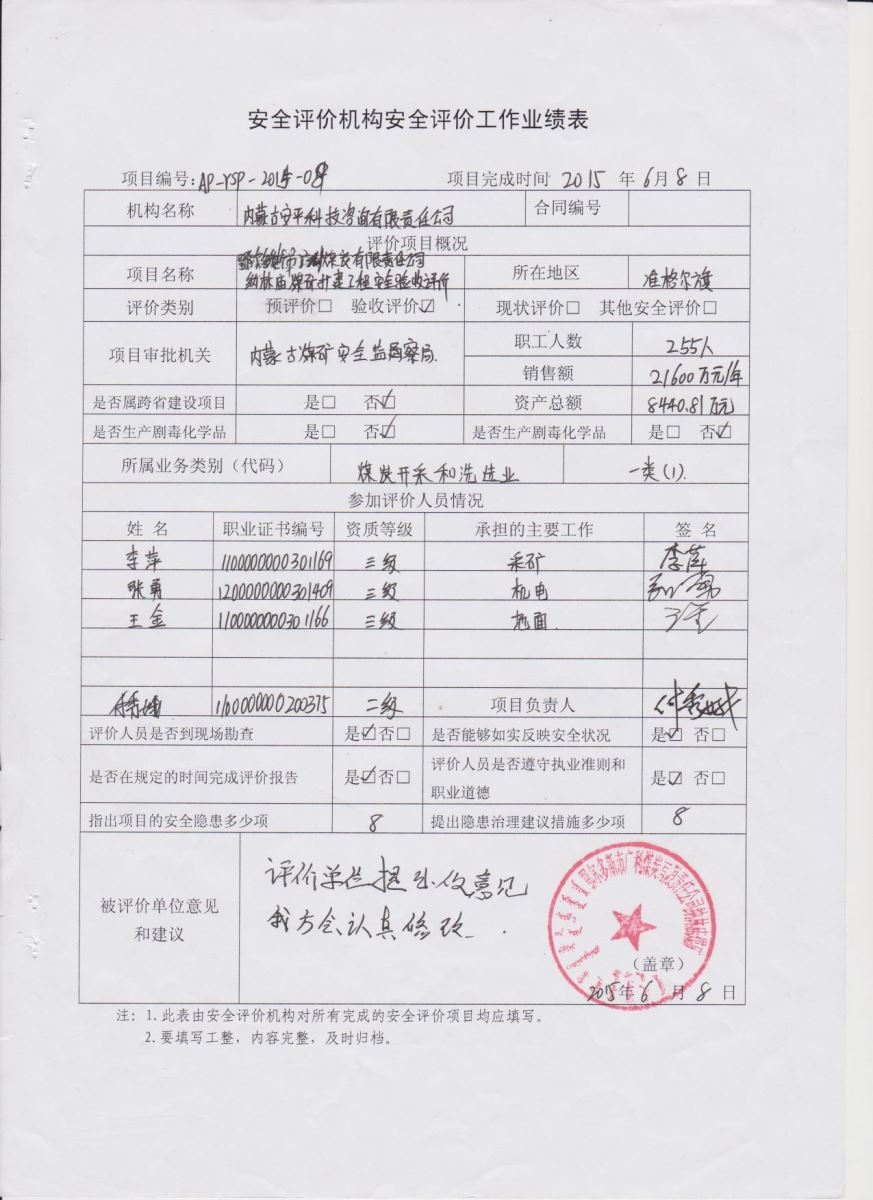 安全评价机构安全评价工作业绩表
项目编号：AP-YSP-2015-09 项目完成时间 2015 年 6月 8 日
机构名称 内蒙古安平科技咨询有限责任公司 合同编号
评价项目概况
项目名称 鄂尔多斯市广利煤炭有限责任公司 所在地区 准格尔旗
纳林庙煤矿扩建工程安全验收评价
评价类别 预评价□ 验收评价☑ 现状评价□ 其他安全评价□
项目审批机关 内蒙古煤矿安全监察局 职工人数 255人
销售额 21600万元/年
是否属跨省建设项目 是□ 否☑ 资产总额 8440.81万元
是否生产剧毒化学品 是□ 否☑ 是否生产剧毒化学品 是□ 否☑
所属业务类别（代码） 煤炭开采和洗选业 一类(1).
参加评价人员情况
姓 名 职业证书编号 资质等级 承担的主要工作 签 名
李萍 1100000000301169 三级 采矿 李萍
张勇 1200000000301409 三级 机电
王金 1100000000301166 三级 地面 王金
1100000000200375 二级 项目负责人
评价人员是否到现场勘查 是☑否□ 是否能够如实反映安全状况 是☑ 否□
是否在规定的时间完成评价报告 是☑否□ 评价人员是否遵守执业准则和
职业道德 是☑ 否□
指出项目的安全隐患多少项 8 提出隐患治理建议措施多少项 8
被评价单位意见
和建议
评价单位提出仪意见
我方会认真修改.
（盖章）
2015年 6 月 8 日
注：1.此表由安全评价机构对所有完成的安全评价项目均应填写。
2.要填写工整，内容完整，及时归档。